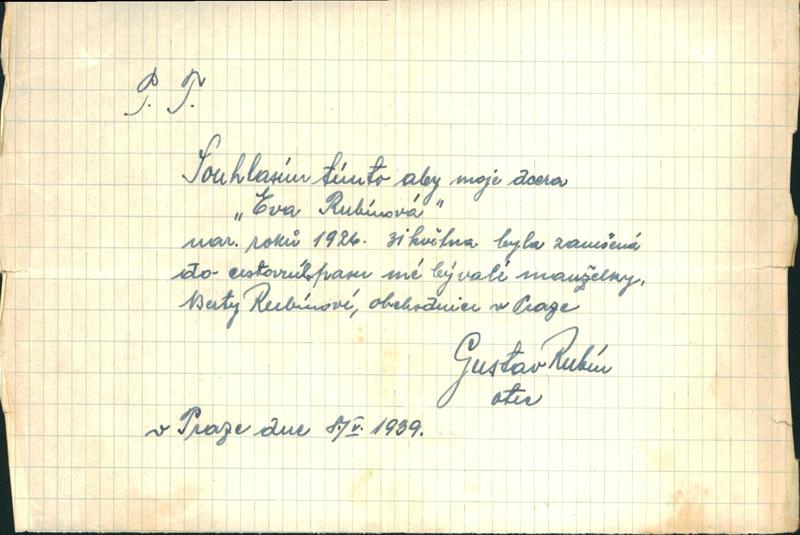 P. T.
Souhlasím tímto aby moje dcera
„Eva Rubínová"
nar. roků 1926. 31 května byla zanešená
do cestovního pasu mé bývalé manželky,
Berty Rubínové, obchodnice v Praze
Gustav Rubín
otec
v Praze dne 8/V. 1939.